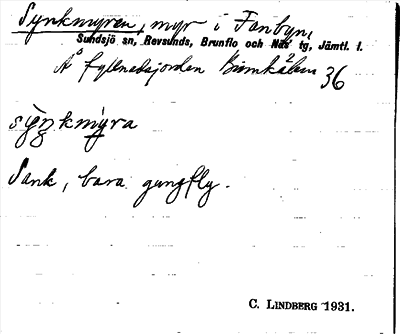 Synkmyren, myr i Fanbyn,
Sundsjö sn, Revsunds, Brunflo och Näs tg, Jämtl. l.
Å fyllnadsjorden 36
synkmyra
Sank, bara gungfly.
C. LINDBERG 1931.